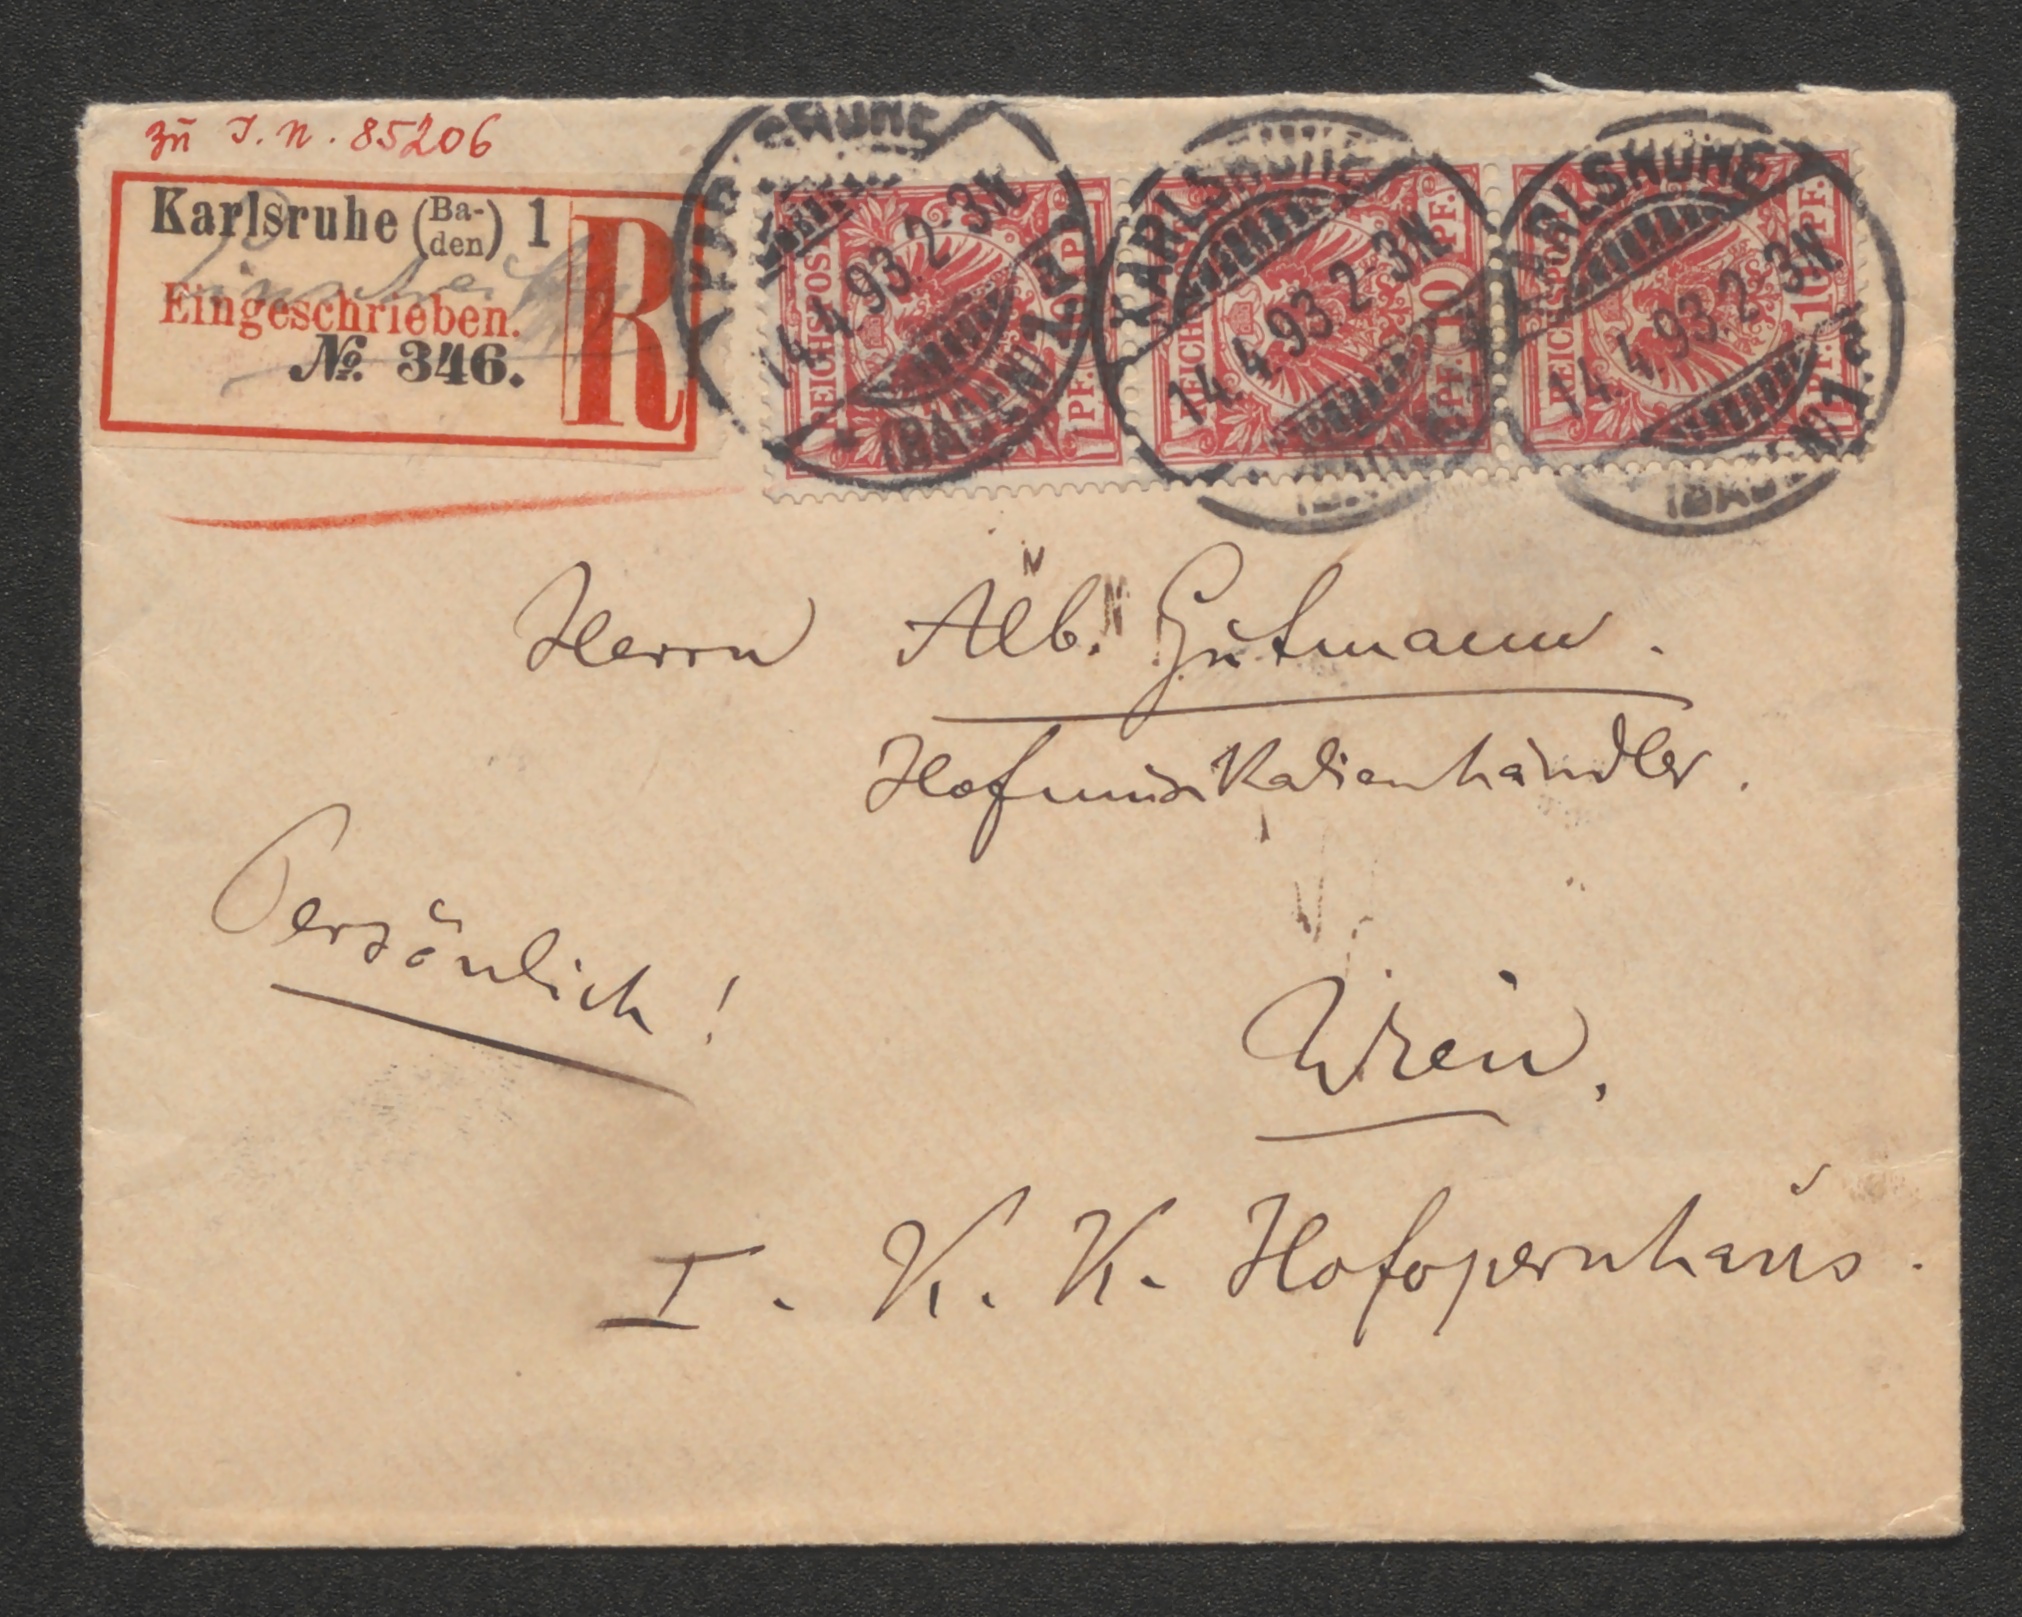 zu I. N. 85206
Karlsruhe (Ba-den) 1
Eingeschrieben.
№. 346.
R
KARLSRUHE
14.4.93.2-3N
(BADEN) 1.
REICHSPOST
10 PF.
KARLSRUHE
14.4.93.2-3N
REICHSPOST
10 PF.
KARLSRUHE
14.4.93.2-3N
(BADEN) 1.
REICHSPOST
10 PF.
Herrn Alb. Gutmann.
Hofmusikalienhändler.
Persönlich!
Wien.
I. K. K. Hofopernhaus.